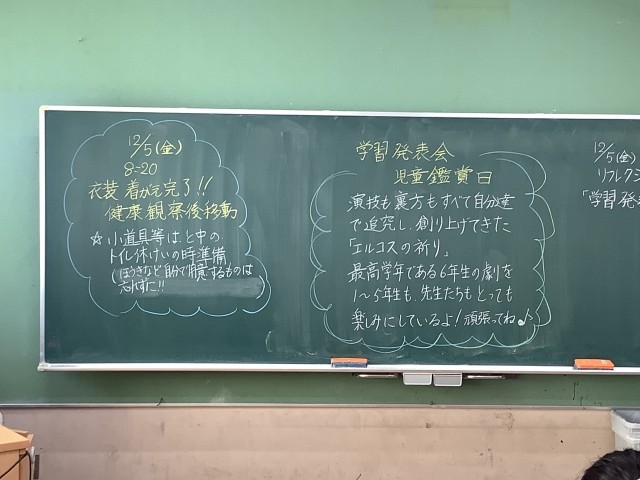 12/5(金)
8:20
衣装着がえ完了!!
健康観察後移動
☆小道具等は、と中の
トイレ休けいの時準備
(ほうきなど自分で用意するものは
忘れずに!!
学習発表会
児童鑑賞日
演技も裏方もすべて自分達
で追究し、創り上げてきた
「エルコスの祈り」
最高学年である6年生の劇を
1~5年生も、先生たちもとっても
楽しみにしているよ!頑張ってね♪
12/5(金)
リフレクシ
「学習発表